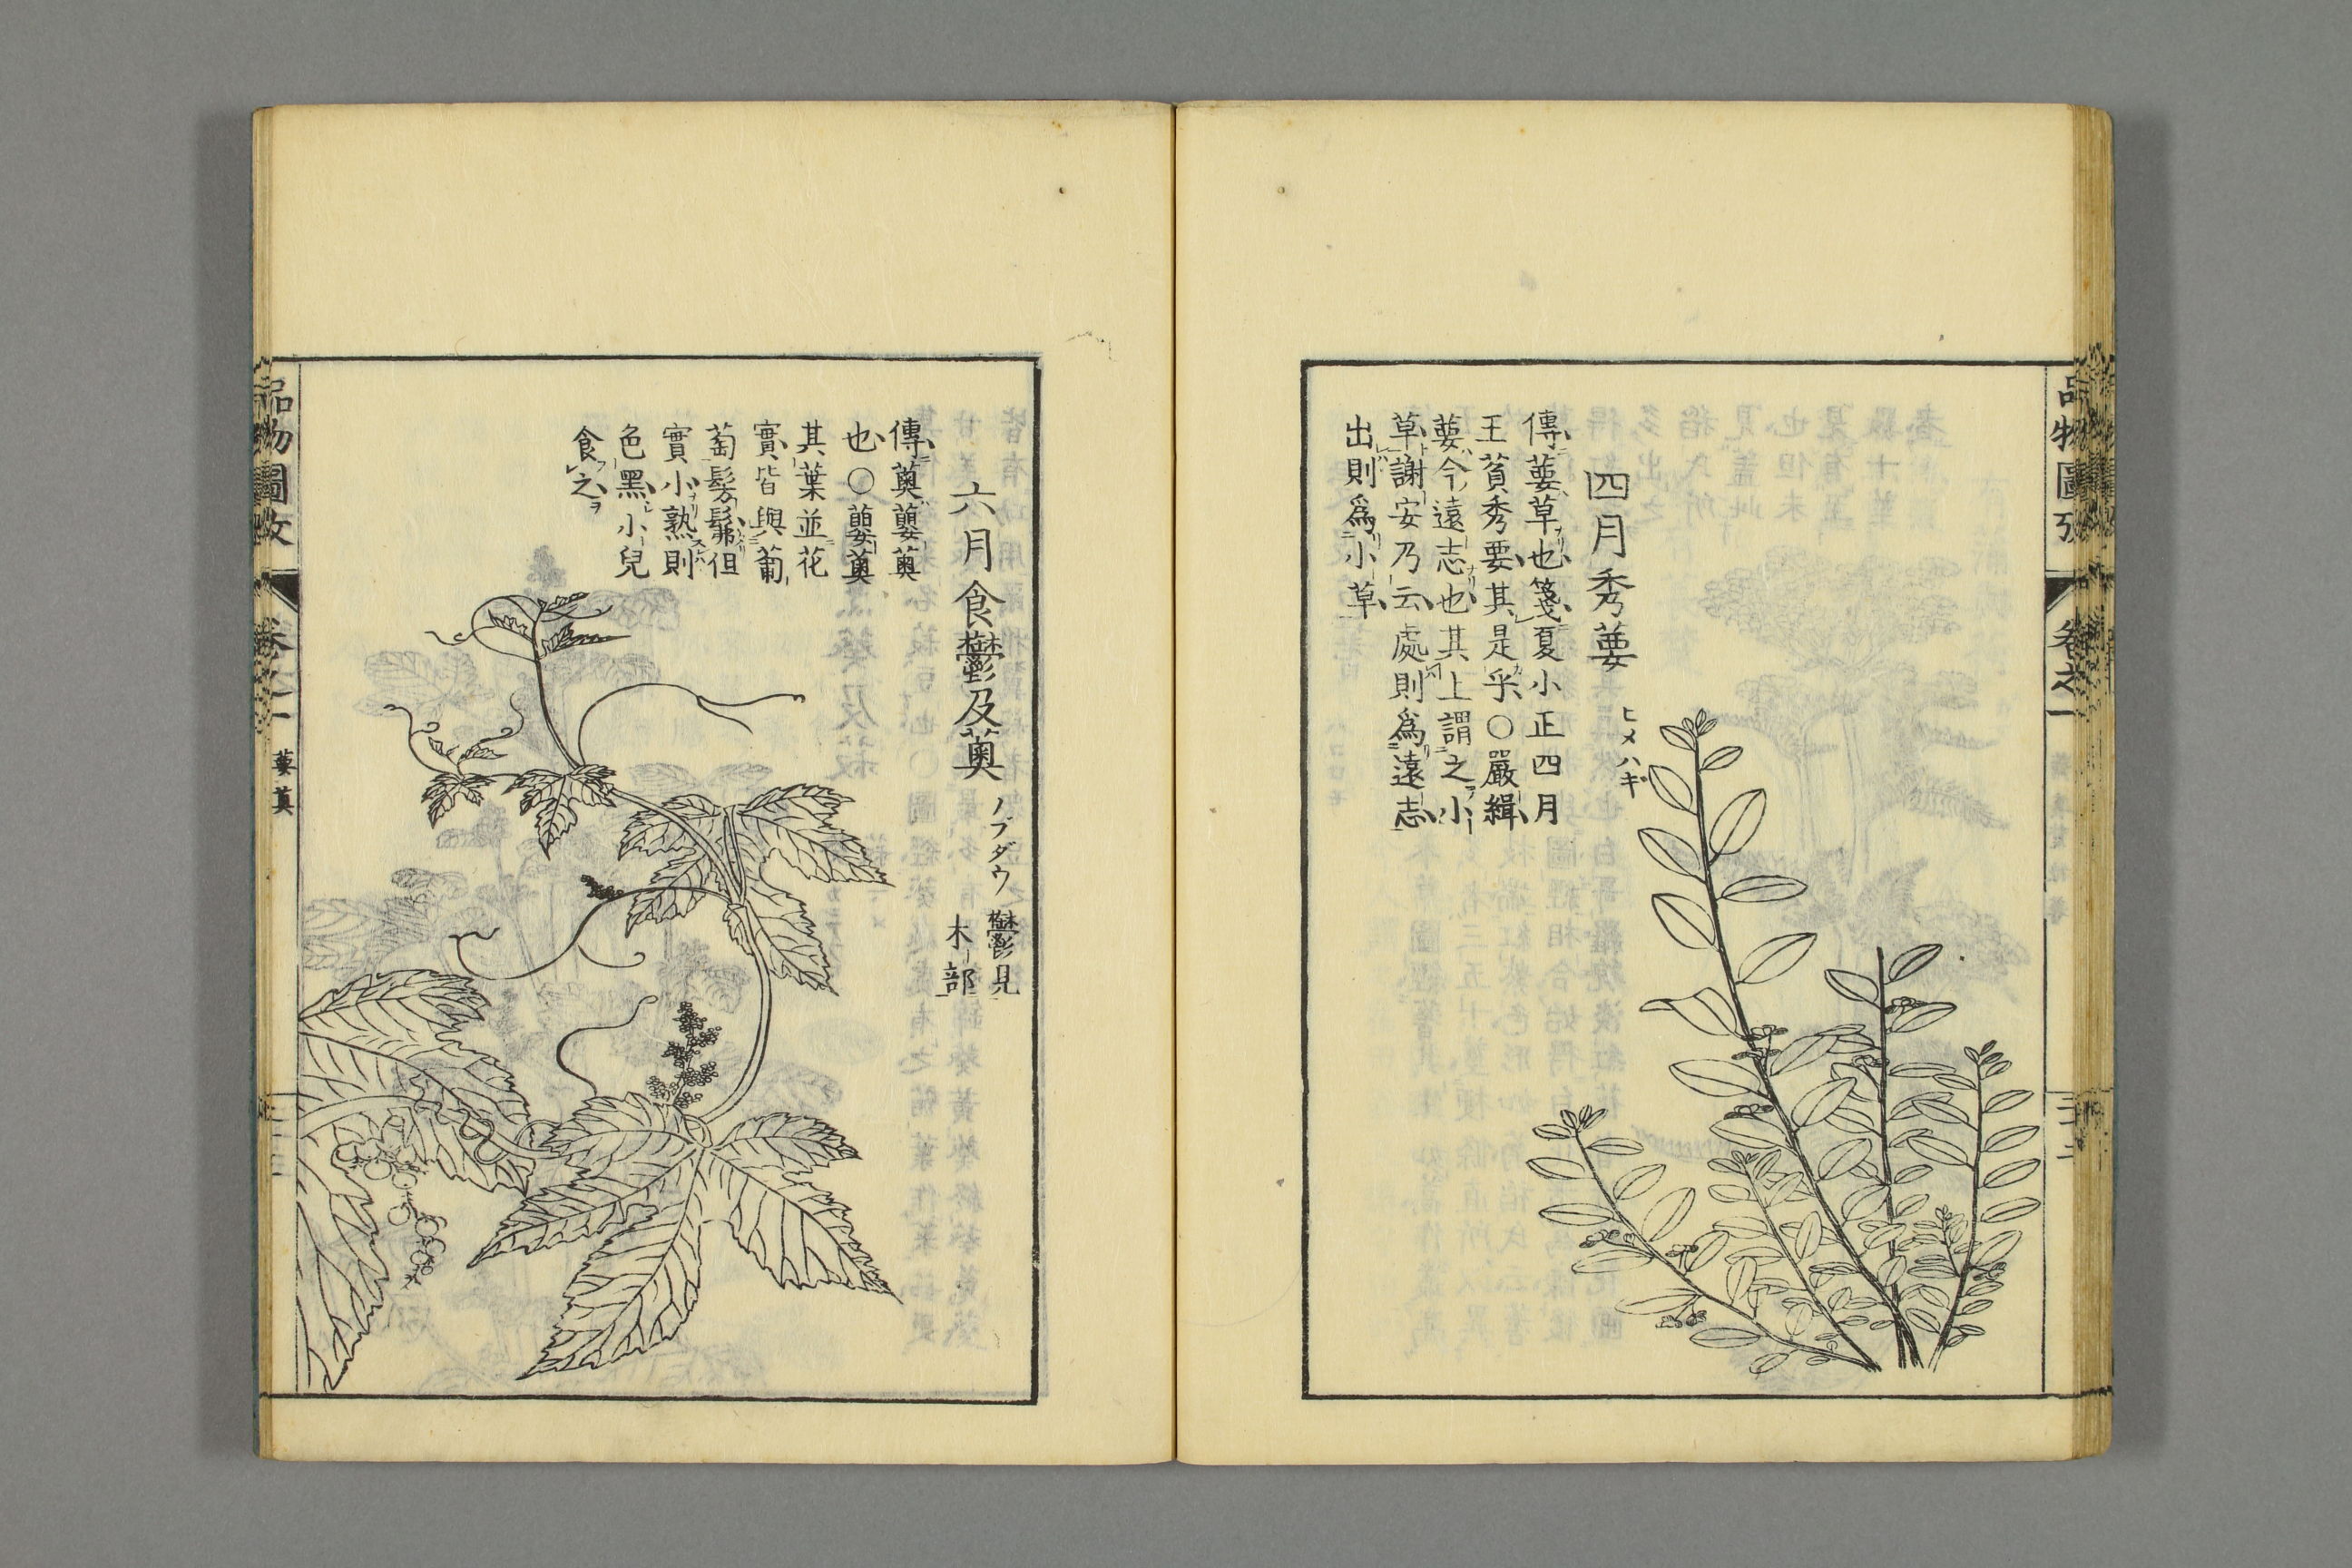 品物圖攷
卷之一
四月秀葽 ヒメハギ
傳葽草也箋夏小正四月
王萯秀葽其是乎〇嚴緝
葽今遠志也其上謂之小
草謝安乃云處則爲遠志
出則爲小草
六月食鬱及薁 ノブダウ 鬱見
木部
傳薁蘡薁
也〇蘡薁
其葉並花
實皆與葡
萄髣髴但
實小熟則
色黑小兒
食之
品物圖攷
卷之一
葽薁